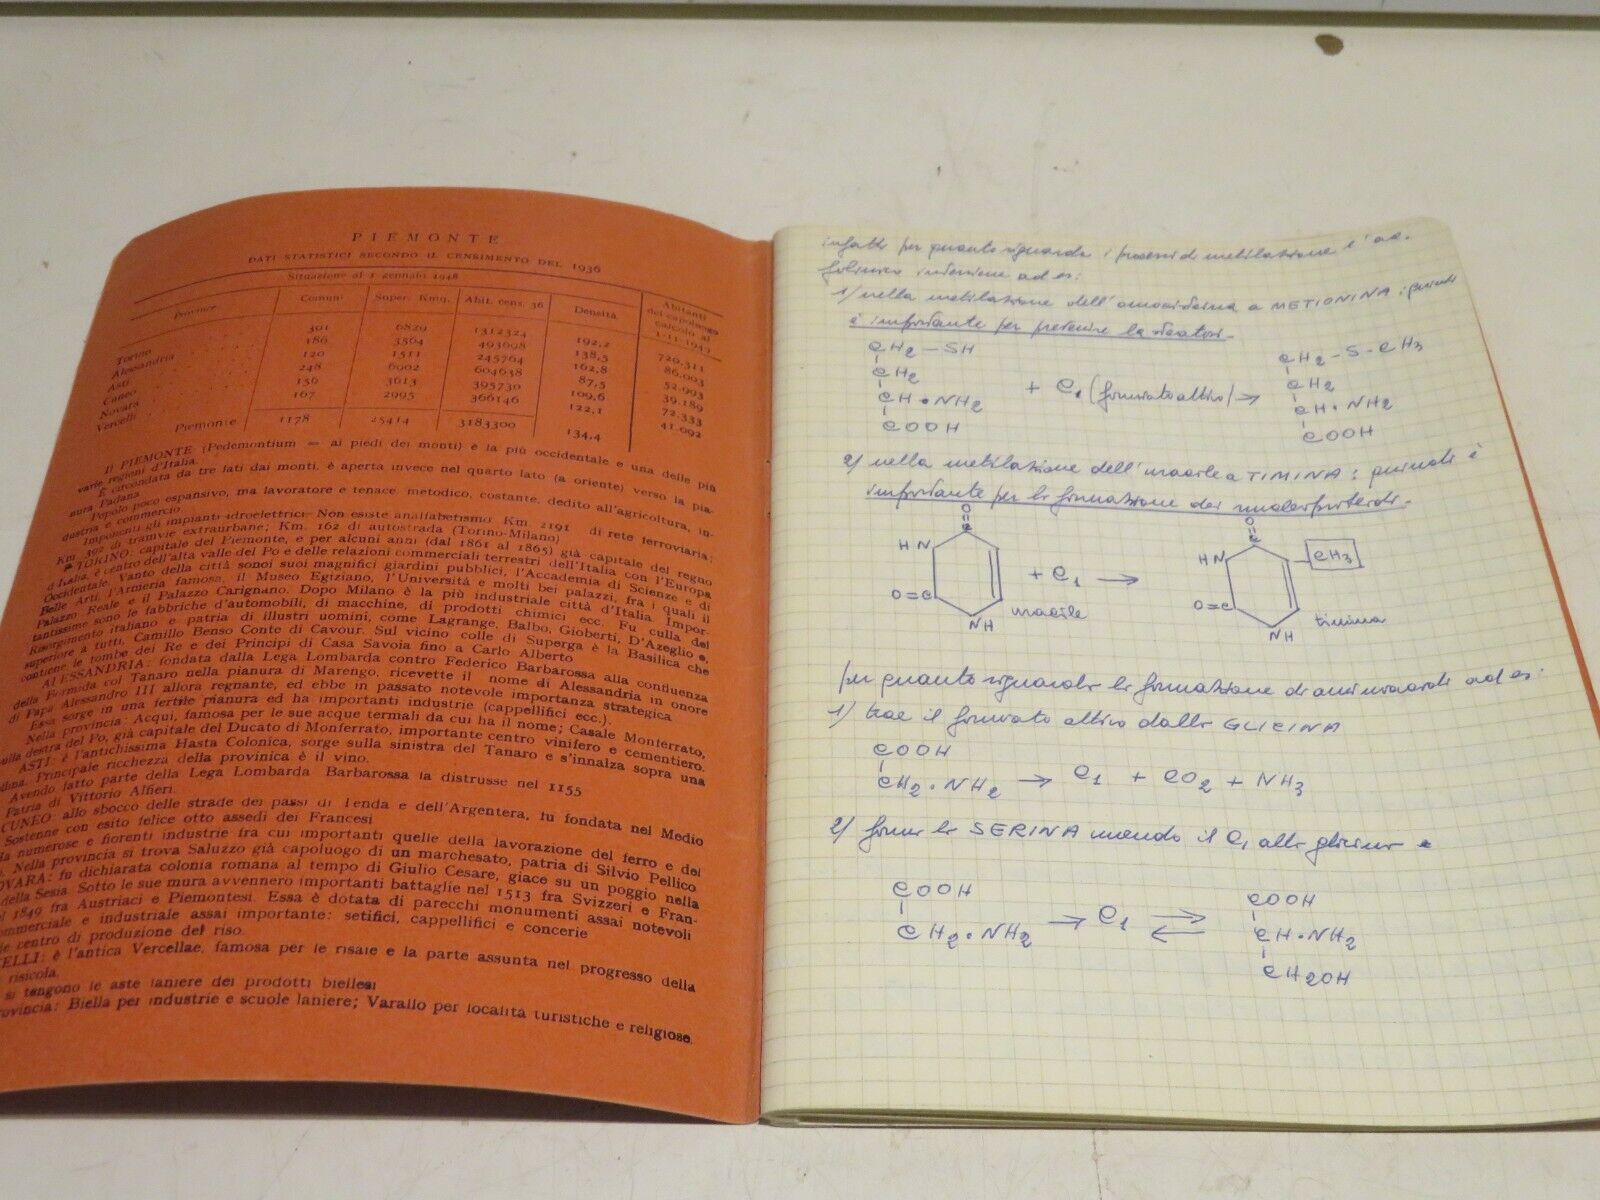 PIEMONTE
DATI STATISTICI SECONDO IL CENSIMENTO DEL 1936
Situazione al 1 gennaio 1948
Province Comuni Super. Kmq. Abit. cens. 36 Densità Abitanti del capoluogo calcolo al 1-11-1947
Torino 301 6829 1312324 192,2 720.311
Alessandria 186 3564 493698 138,5 86.003
Asti 120 1511 245764 162,8 52.993
Cuneo 248 6902 604638 87,5 39.189
Novara 156 3613 395730 109,6 72.333
Vercelli 167 2995 366146 122,1 41.092
Piemonte 1178 25414 3183300 134,4
Il PIEMONTE (Pedemontium = ai piedi dei monti) è la più occidentale e una delle più
varie regioni d'Italia.
È circondata da tre lati dai monti, è aperta invece nel quarto lato (a oriente) verso la pia-
nura Padana
Popolo poco espansivo, ma lavoratore e tenace metodico, costante, dedito all'agricoltura, in-
dustria e commercio
Imponenti gli impianti idroelettrici. Non esiste analfabetismo Km. 2191 di rete ferroviaria;
Km. 392 di tramvie extraurbane; Km. 162 di autostrada (Torino-Milano)
TORINO: capitale del Piemonte, e per alcuni anni (dal 1861 al 1865) già capitale del regno
d'Italia, è centro dell'alta valle del Po e delle relazioni commerciali terrestri dell'Italia con l'Europa
Occidentale. Vanto della città sono i suoi magnifici giardini pubblici, l'Accademia di Scienze e di
Belle Arti, l'Armeria famosa, il Museo Egiziano, l'Università e molti bei palazzi, fra i quali il
Palazzo Reale e il Palazzo Carignano. Dopo Milano è la più industriale città d'Italia. Impor-
tantissime sono le fabbriche d'automobili, di macchine, di prodotti chimici ecc. Fu culla del
Risorgimento italiano e patria di illustri uomini, come Lagrange, Balbo, Gioberti, D'Azeglio e,
superiore a tutti, Camillo Benso Conte di Cavour. Sul vicino colle di Superga è la Basilica che
contiene le tombe dei Re e dei Principi di Casa Savoia fino a Carlo Alberto
ALESSANDRIA: fondata dalla Lega Lombarda contro Federico Barbarossa alla confluenza
della Bormida col Tanaro nella pianura di Marengo, ricevette il nome di Alessandria in onore
di Papa Alessandro III allora regnante, ed ebbe in passato notevole importanza strategica
Essa sorge in una fertile pianura ed ha importanti industrie (cappellifici ecc.).
Nella provincia: Acqui, famosa per le sue acque termali da cui ha il nome; Casale Monferrato,
sulla destra del Po, già capitale del Ducato di Monferrato, importante centro vinifero e cementiero.
ASTI: è l'antichissima Hasta Colonica, sorge sulla sinistra del Tanaro e s'innalza sopra una
Principale ricchezza della provincia è il vino.
Avendo fatto parte della Lega Lombarda Barbarossa la distrusse nel 1155
Patria di Vittorio Alfieri.
CUNEO allo sbocco delle strade dei passi di Tenda e dell'Argentera, fu fondata nel Medio
Sostenne con esito felice otto assedi dei Francesi
Ha numerose e fiorenti industrie fra cui importanti quelle della lavorazione del ferro e del
Nella provincia si trova Saluzzo già capoluogo di un marchesato, patria di Silvio Pellico
OVARA: fu dichiarata colonia romana al tempo di Giulio Cesare, giace su un poggio nella
della Sesia. Sotto le sue mura avvennero importanti battaglie nel 1513 fra Svizzeri e Fran-
1849 fra Austriaci e Piemontesi. Essa è dotata di parecchi monumenti assai notevoli
ommerciale e industriale assai importante: setifici, cappellifici e concerie
centro di produzione del riso.
ELLI: è l'antica Vercellae, famosa per le risaie e la parte assunta nel progresso della
risicola.
si tengono le aste laniere dei prodotti biellesi
rovincia: Biella per industrie e scuole laniere; Varallo per località turistiche e religiose.
infatti per quanto riguarda i processi di metilazione l'ac.
folinico interviene ad es:
1) nella metilazione dell'omocisteina a METIONINA: quindi
è importante per prevenire la steatosi-
CH2-SH
CH2
CH·NH2
COOH
+ C1 (formiato attivo) →
CH2-S-CH3
CH2
CH·NH2
COOH
2) nella metilazione dell'uracile a TIMINA: quindi è
importante per la formazione dei nucleoproteidi-
O
HN
O=C
NH
uracile
+ C1 →
O
HN
CH3
O=C
NH
timina
per quanto riguarda la formazione di aminoacidi ad es:
1) trae il formiato attivo dalla GLICINA
COOH
CH2·NH2 → C1 + CO2 + NH3
2) forma la SERINA unendo il C1 alla glicina
COOH
CH2·NH2 → C1 ⇌
COOH
CH·NH2
CH2OH